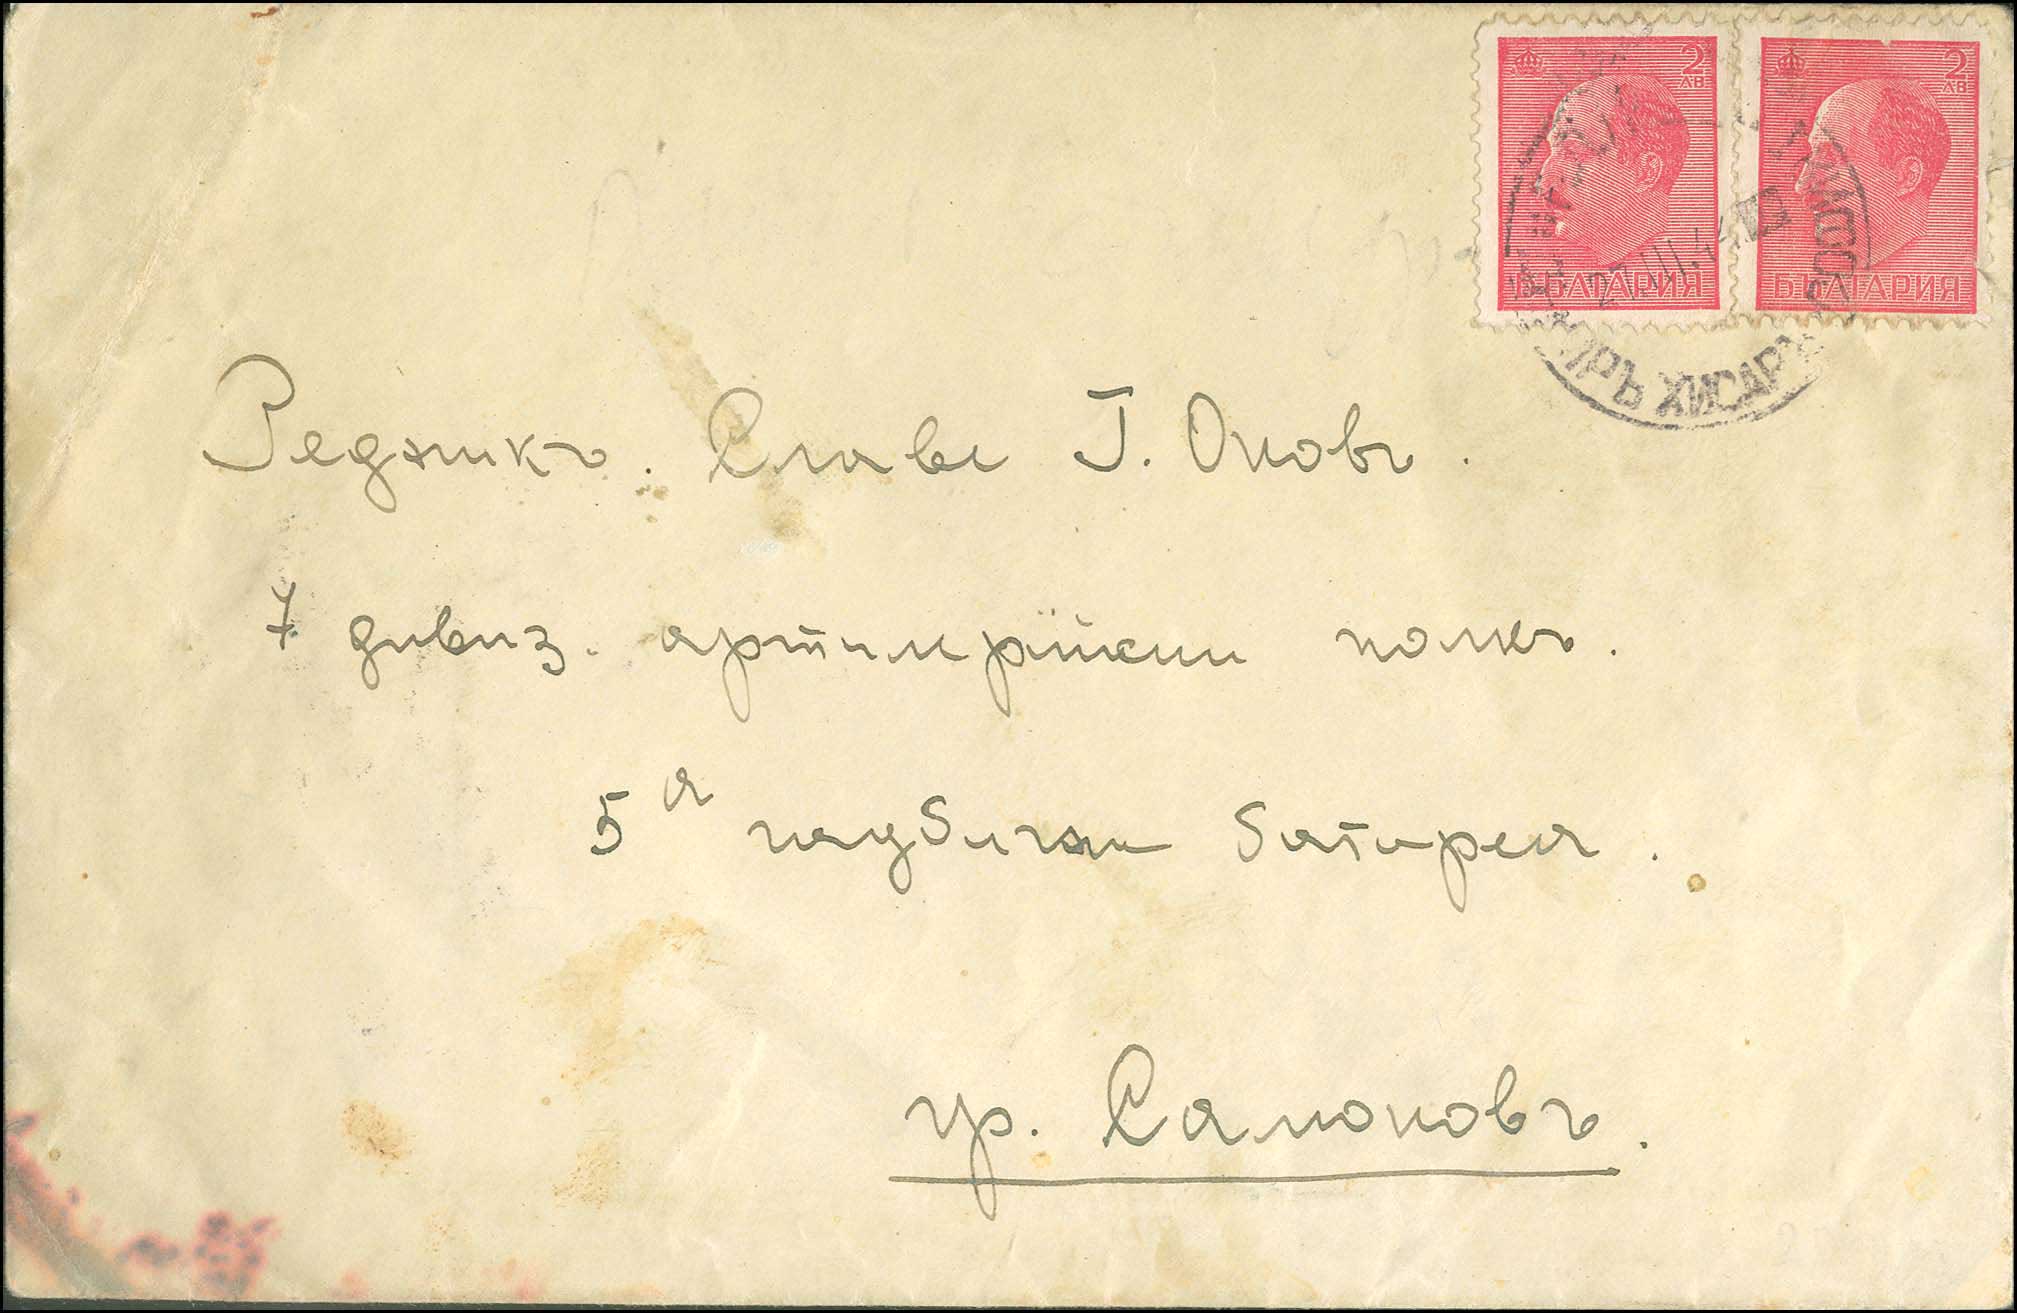 2 ЛВ
БЪЛГАРИЯ
2 ЛВ
БЪЛГАРИЯ
27.III.4
ИРЪ ХИСАРЪ
Редникъ. Славе Г. Оковъ.
7 дивиз. артилерийски полкъ.
5 я батарея.
гр. Самоковъ.